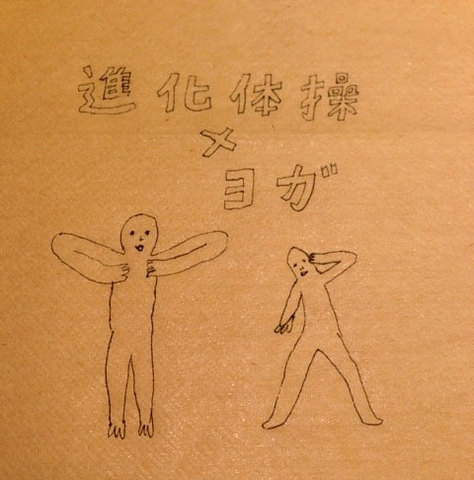 進化体操
×
ヨガ